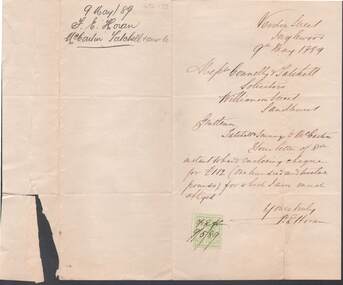 9 May/89
F. E. Horan
McCarlin Tatchell
Street
9th May 1889
Messrs Connelly & Tatchell
Solicitors
Williamson Street
Sandhurst
Gentlemen
Tatchell
Your letter of 8th
instant to hand enclosing cheque
for £112 (One hundred and twelve
pounds) for which I am much
obliged
Yours truly
Horan
9/5/89